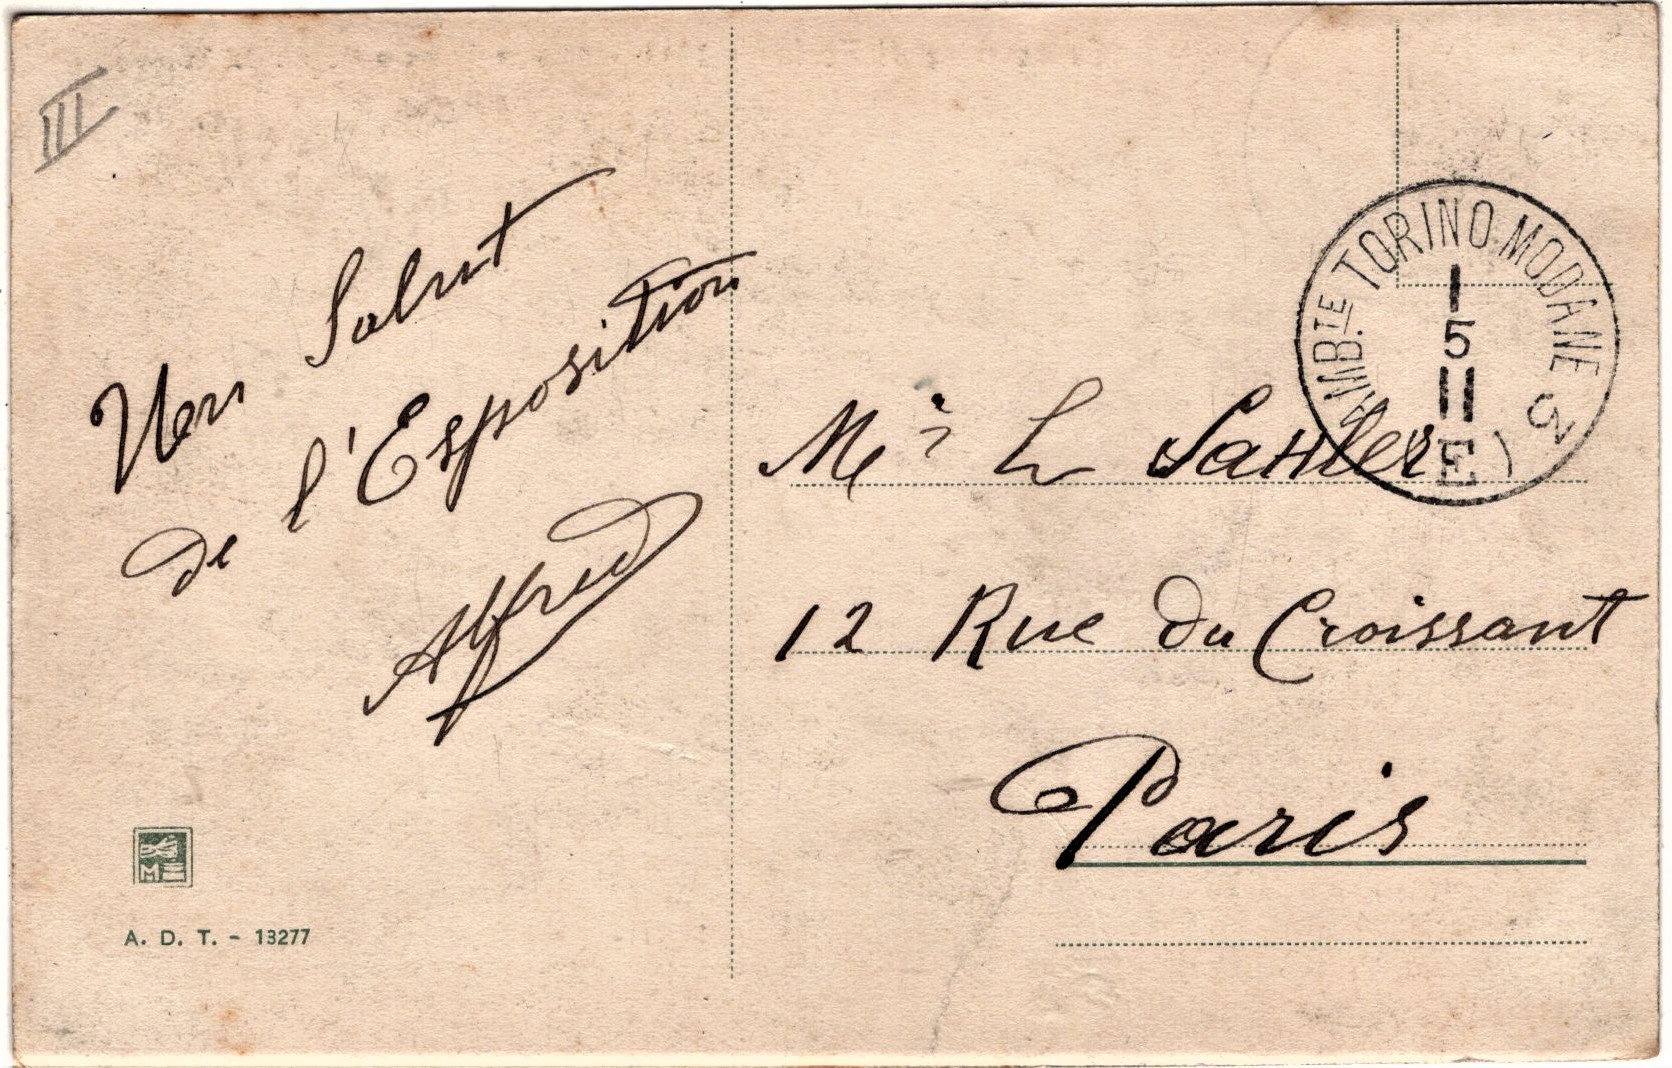 III
Un Salut
de l'Exposition
Alfred
M
A. D. T. - 13277
AMB.TE TORINO-MODANE 3
1
5
11
E
Mr L Sautter
12 Rue du Croissant
Paris